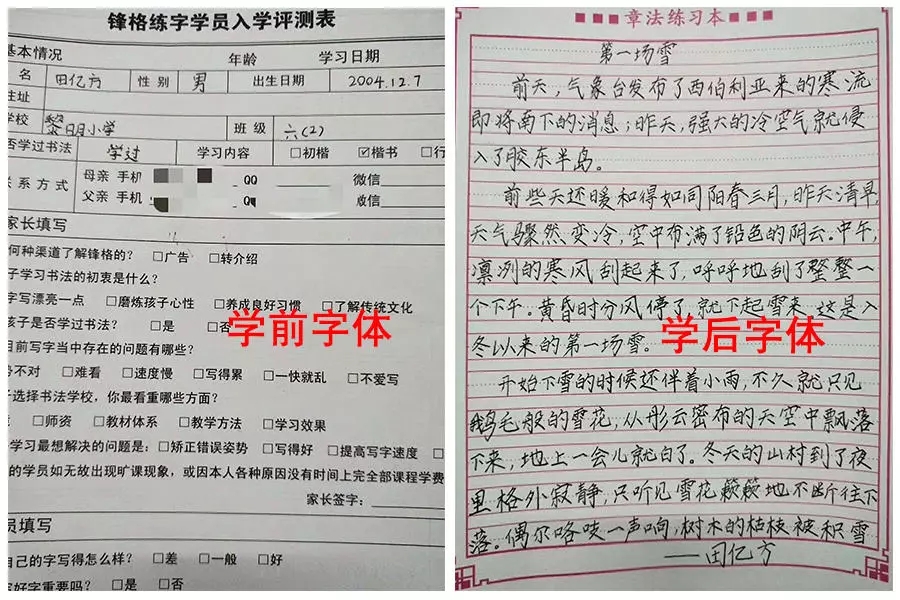 锋格练字学员入学评测表
基本情况 年龄 学习日期
名 田亿方 性别 男 出生日期 2004.12.7
住址
学校 黎明小学 班级 六(2)
否学过书法 学过 学习内容 □初楷 ☑楷书 □行
系方式 母亲 手机 QQ 微信
父亲 手机 微信
家长填写
何种渠道了解锋格的? □广告 □转介绍
子学习书法的初衷是什么?
字写漂亮一点 □磨炼孩子心性 □养成良好习惯 □了解传统文化
孩子是否学过书法? □是 □否
目前写字当中存在的问题有哪些?
势不对 □难看 □速度慢 □写得累 □一快就乱 □不爱写
子选择书法学校,你最看重哪些方面?
□师资 □教材体系 □教学方法 □学习效果
学习最想解决的问题是:□矫正错误姿势 □写得好 □提高写字速度 □
的学员如无故出现旷课现象,或因本人各种原因没有时间上完全部课程学费
家长签字:
员填写
自己的字写得怎么样? □差 □一般 □好
写好字重要吗? □是 □否
学前字体
章法练习本
第一场雪
前天,气象台发布了西伯利亚来的寒流
即将南下的消息;昨天,强大的冷空气就侵
入了胶东半岛。
前些天还暖和得如同阳春三月,昨天清早,
天气骤然变冷,空中布满了铅色的阴云。中午,
凛冽的寒风刮起来了,呼呼地刮了整整一
个下午。黄昏时分风停了,就下起雪来,这是入
冬以来的第一场雪。
学后字体
开始下雪的时候还伴着小雨,不久就只见
鹅毛般的雪花,从彤云密布的天空中飘落
下来,地上一会儿就白了。冬天的山村到了夜
里格外寂静,只听见雪花簌簌地不断往下
落。偶尔咯吱一声响,树木的枯枝被积雪
——田亿方